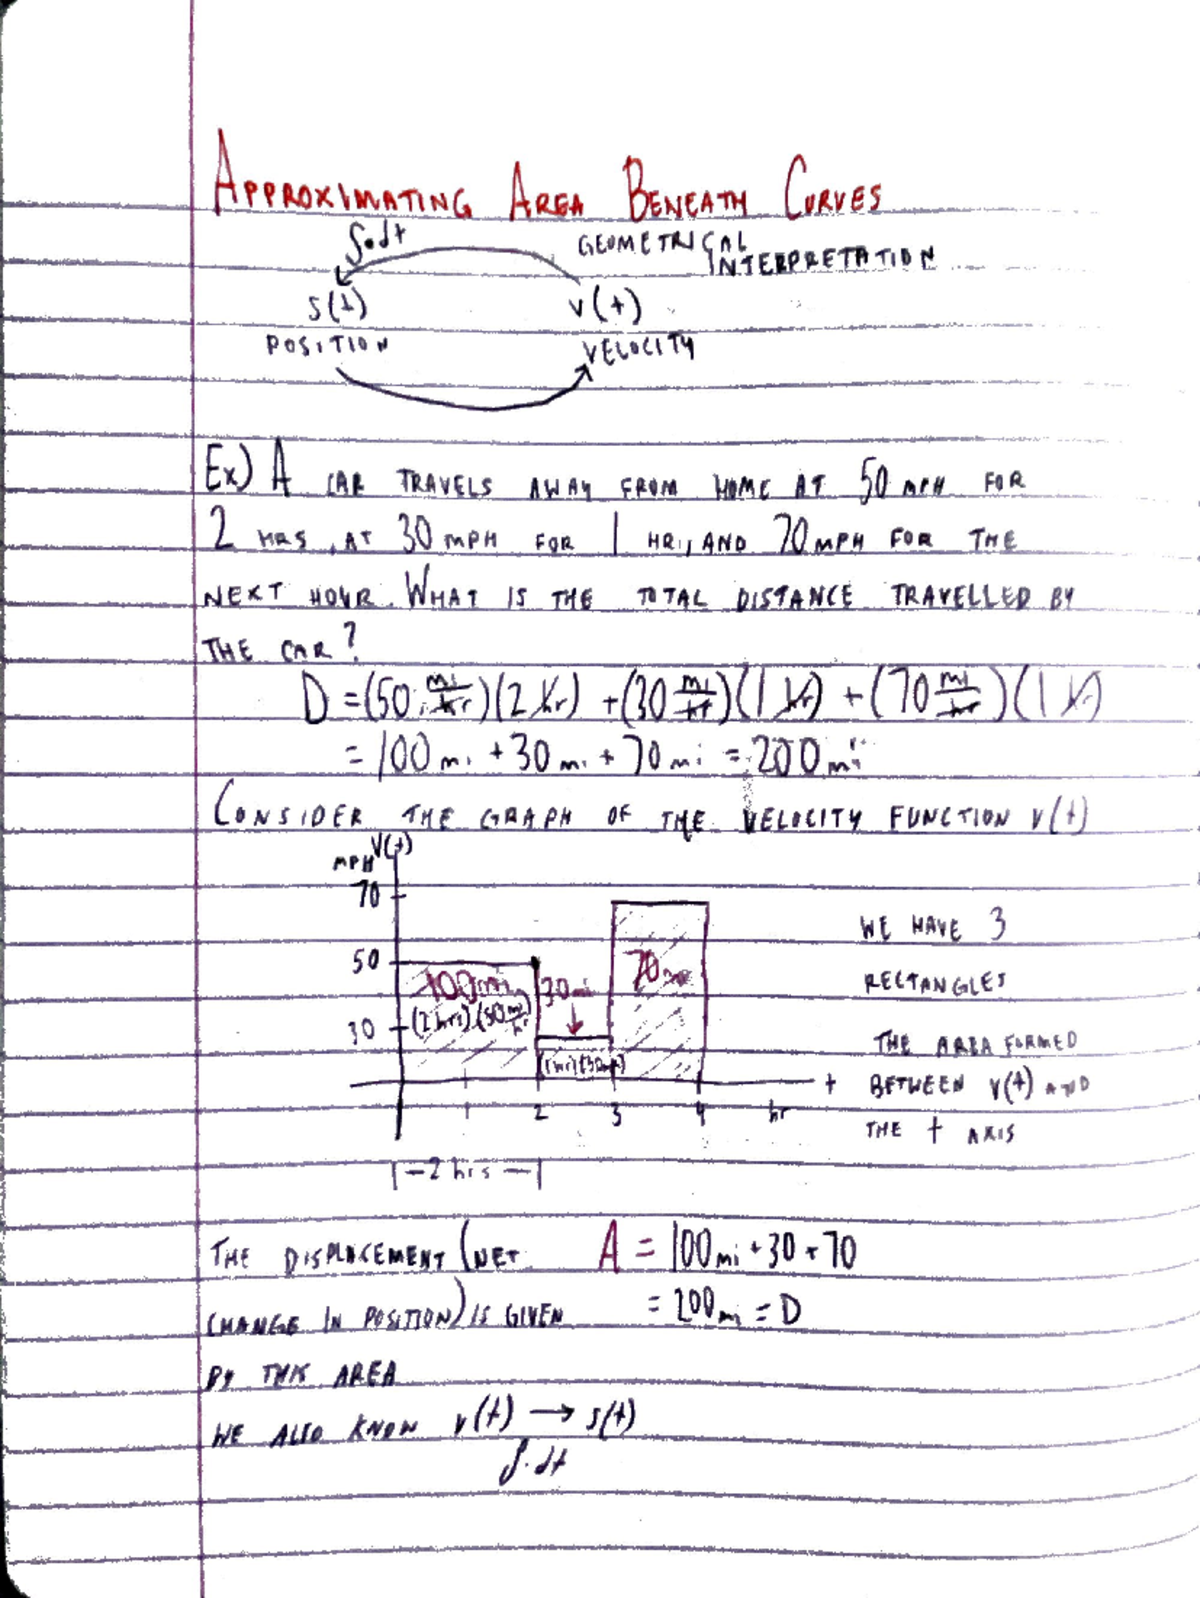 APPROXIMATING AREA BENEATH CURVES
∫•dt
GEOMETRICAL
INTERPRETATION
s(t) v(t)
POSITION VELOCITY
Ex) A CAR TRAVELS AWAY FROM HOME AT 50 MPH FOR
2 HRS, AT 30 MPH FOR 1 HR, AND 70 MPH FOR THE
NEXT HOUR. WHAT IS THE TOTAL DISTANCE TRAVELLED BY
THE CAR?
D = (50 mi/hr)(2 hr) + (30 mi/hr)(1 hr) + (70 mi/hr)(1 hr)
= 100 mi + 30 mi + 70 mi = 200 mi
CONSIDER THE GRAPH OF THE VELOCITY FUNCTION v(t)
MPH V(t)
70
WE HAVE 3
RECTANGLES
50
100mi
30mi
70mi
(2 hrs)(50 mi/hr)
30
(1hr)(30mph)
THE AREA FORMED
t BETWEEN v(t) AND
1 2 3 4 hr
THE t AXIS
|—2 hrs—|
THE DISPLACEMENT (NET A = 100mi + 30 + 70
CHANGE IN POSITION) IS GIVEN = 200mi = D
BY THIS AREA
WE ALSO KNOW v(t) → s(t)
∫•dt